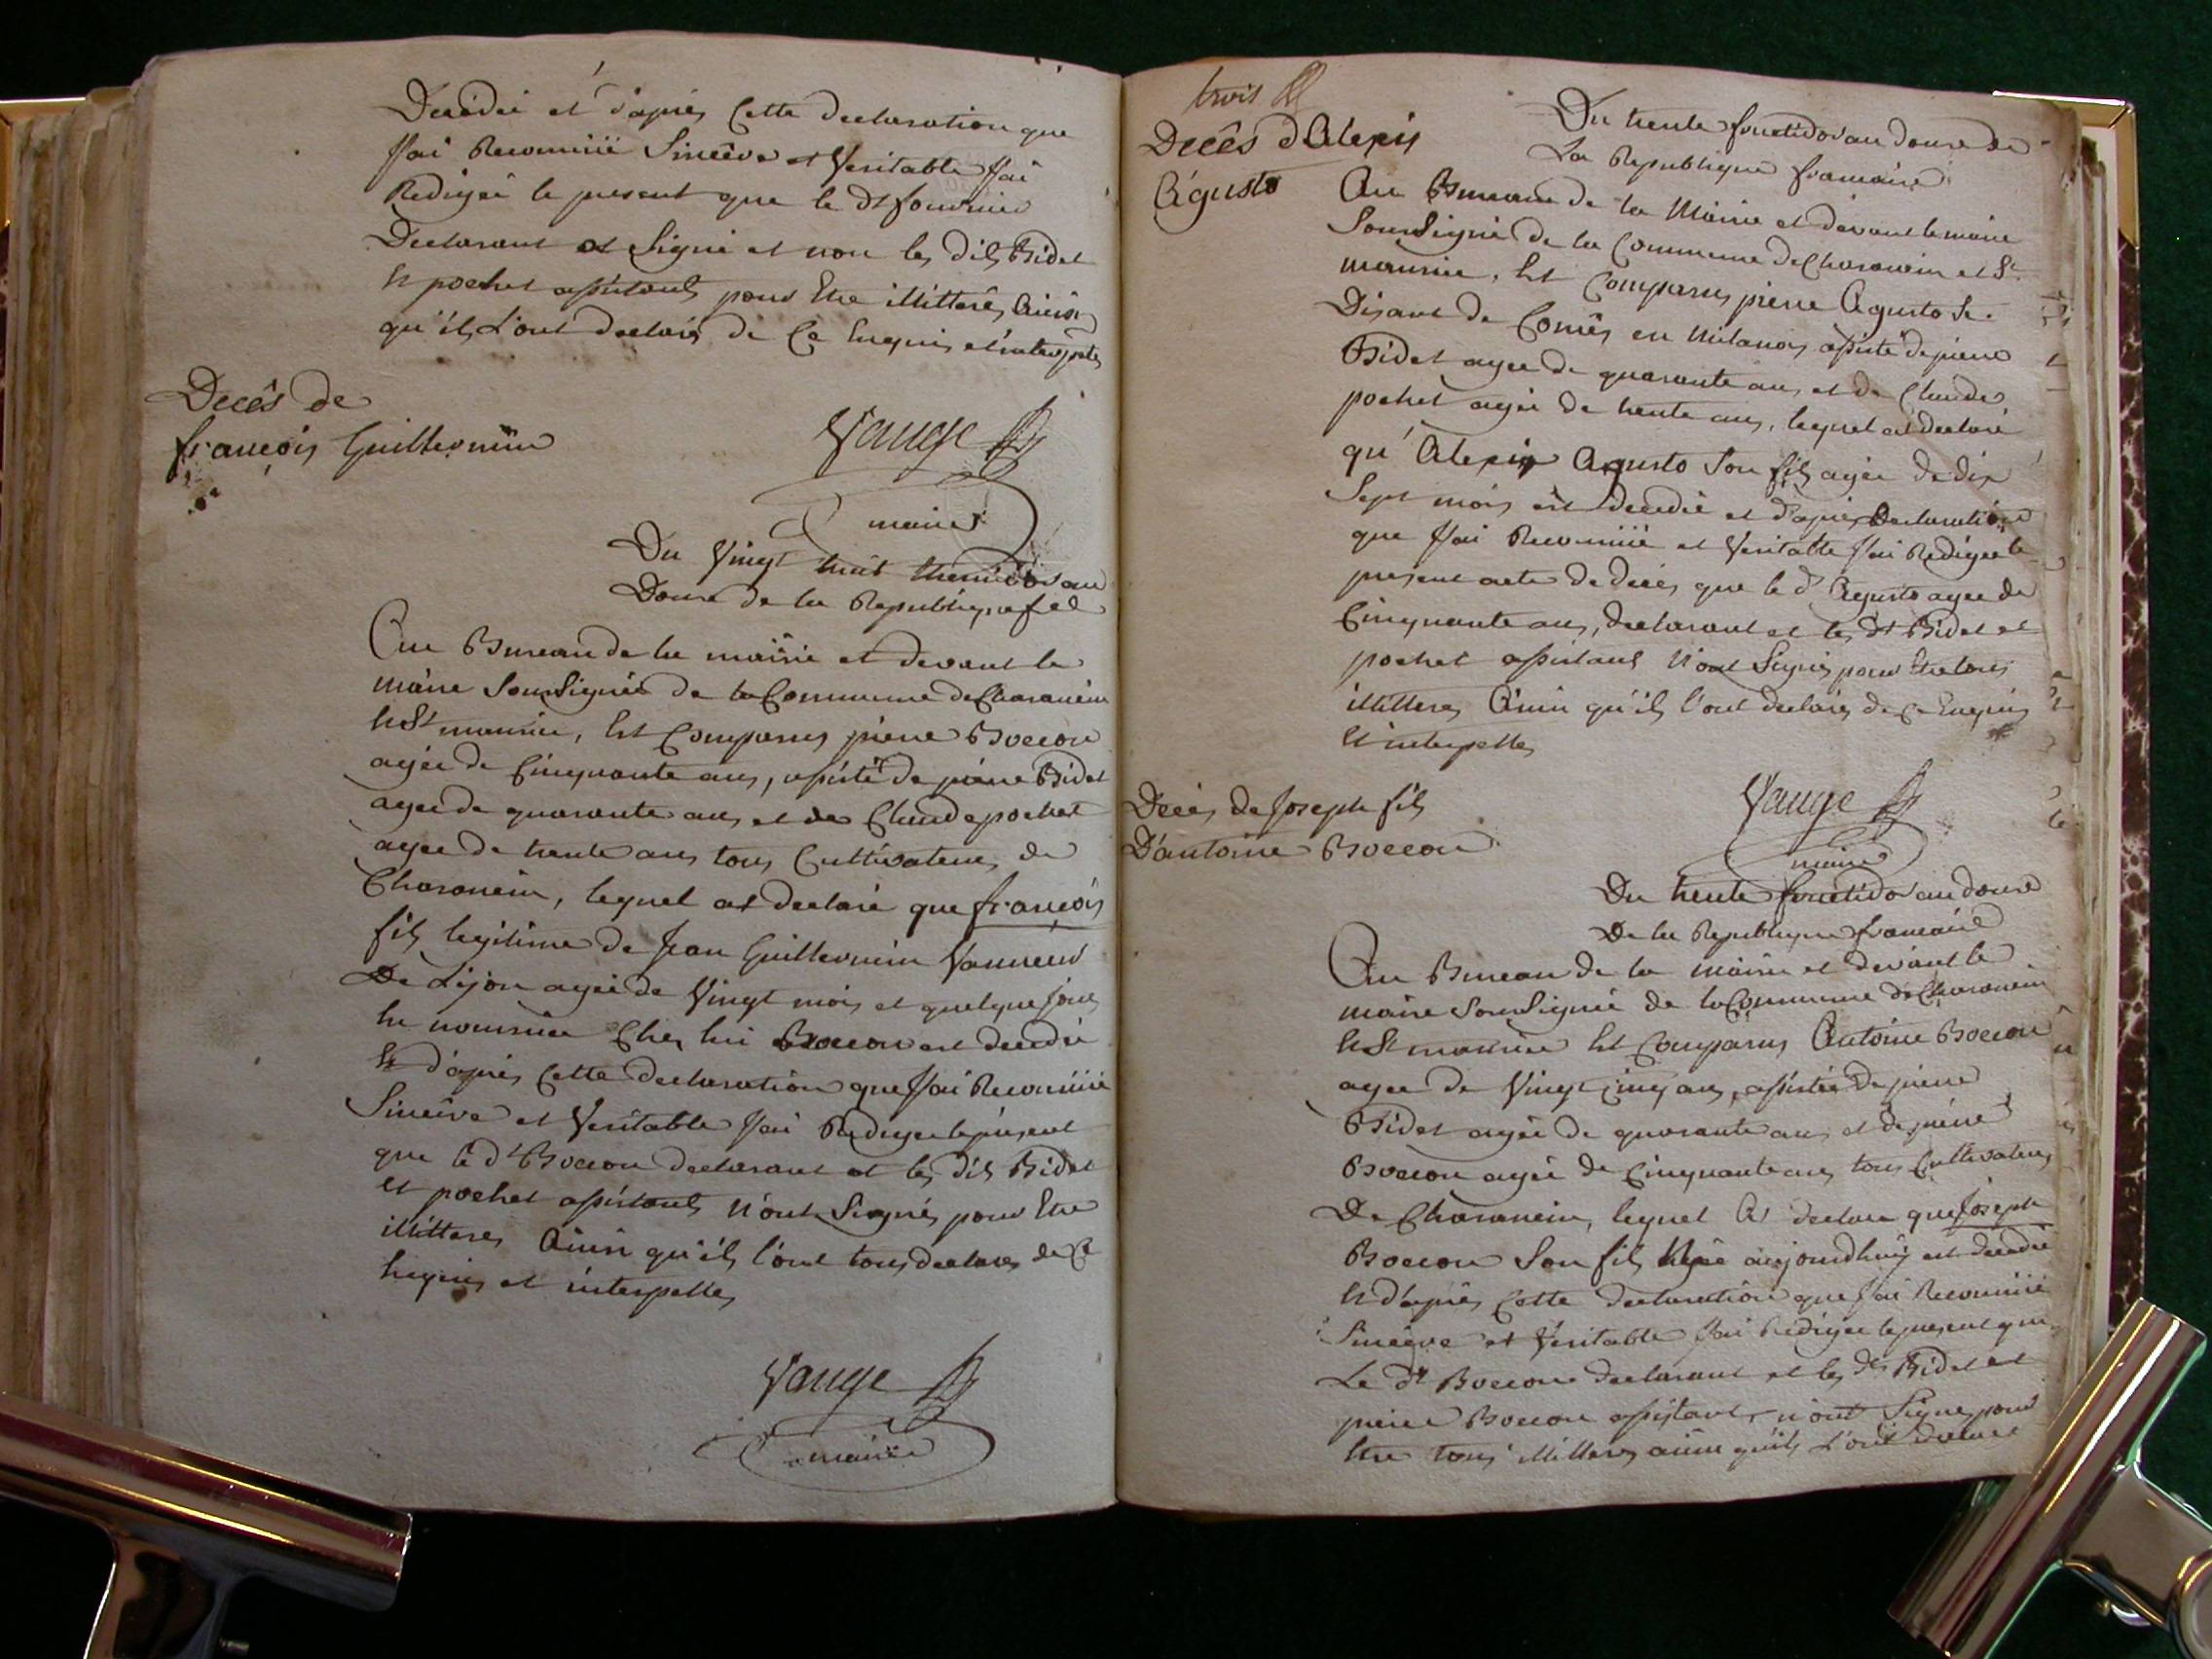 Decédé et d'aprés Cette declaration que
J'ai Reconnüe Sincêre et Veritable J'ai
Redigée le present que le dt fournier
Declarant at Signé et non les dits Bidet
Et pochet assistants pour Etre illitteré, Ainsi
qu'ils L'ont declarés de Ce Enquis et interpelés
Vange
maire
Decês de
françois Guillermin
Du Vingt huit thermidor an
Douze de la Republique
Au Bureau de la mairie et devant le
maire Sousignée de la Commune de Charanein
Et St maurice, Est Comparus pierre Boccon
agée de Cinquante ans, assisté de pierre Bidet
agée de quarante ans et de Claude pochet
agée de trente ans tous Cultivateurs de
Charanein, lequel at declaré que françois
fils legitime de Jean Guillermin Vanneur
De Lijon agée de Vingt mois et quelque jours
En nourrice Chez lui Boccon est decedé
Et d'aprés Cette declaration que J'ai Reconnüe
Sincêre et Veritable J'ai Redigée le present
que le dt Boccon declarant et les dits Bidet
et pochet assistants N'ont Signés pour Etre
illitteres Ainsi qu'ils l'ont tous declares de Ce
Enquis et interpelles
Vange
maire
trois
Decês d'Alexis
Agusto
Du trente fructidor an douze de
La Republique francaise
Au Bureau de la Mairie et devant le maire
Sousigné de la Commune de Charanein et St
maurice, Est Comparus pierre Agusto Se
Disant de Comês en Milanois assisté de pierre
Bidet agée de quarante ans et de Claude
pochet agée de trente ans, lequel at declaré
qu'Alexis Agusto Son fils agée de dix
Sept mois est decedé et d'aprés Declaration
que J'ai Reconnüe et Veritable J'ai Redigée le
present acte de decés que le dt Agusto agée de
Cinquante ans, declarant et les dt Bidet et
pochet assistants N'ont Signés pour Etre tous
illitteres Ainsi qu'ils l'ont declarés de Ce Enquis
Et interpelles
Vange
maire
Decés de Joseph fils
D'antoine Boccon
Du trente fructidor an douze
De la Republique francaise
Au Bureau de la mairie et devant le
maire Sousignée de la Commune de Charanein
Et St maurice Est Comparus Antoine Boccon
agée de Vingt Cinq ans, assistée de pierre
Bidet agée de quarante ans et de pierre
Boccon agée de Cinquante ans tous Cultivateurs
De Charanein, lequel At declare que Joseph
Boccon Son fils aujourdhuÿ est decedé
Et d'aprés Cette declaration que J'ai Reconnüe
Sincêre et Véritable J'ai Redigée le present que
Le dt Boccon declarant et les dts Bidet et
pierre Boccon assistants n'ont Signe pour
Etre tous illitteres ainsi qu'ils L'ont declaré